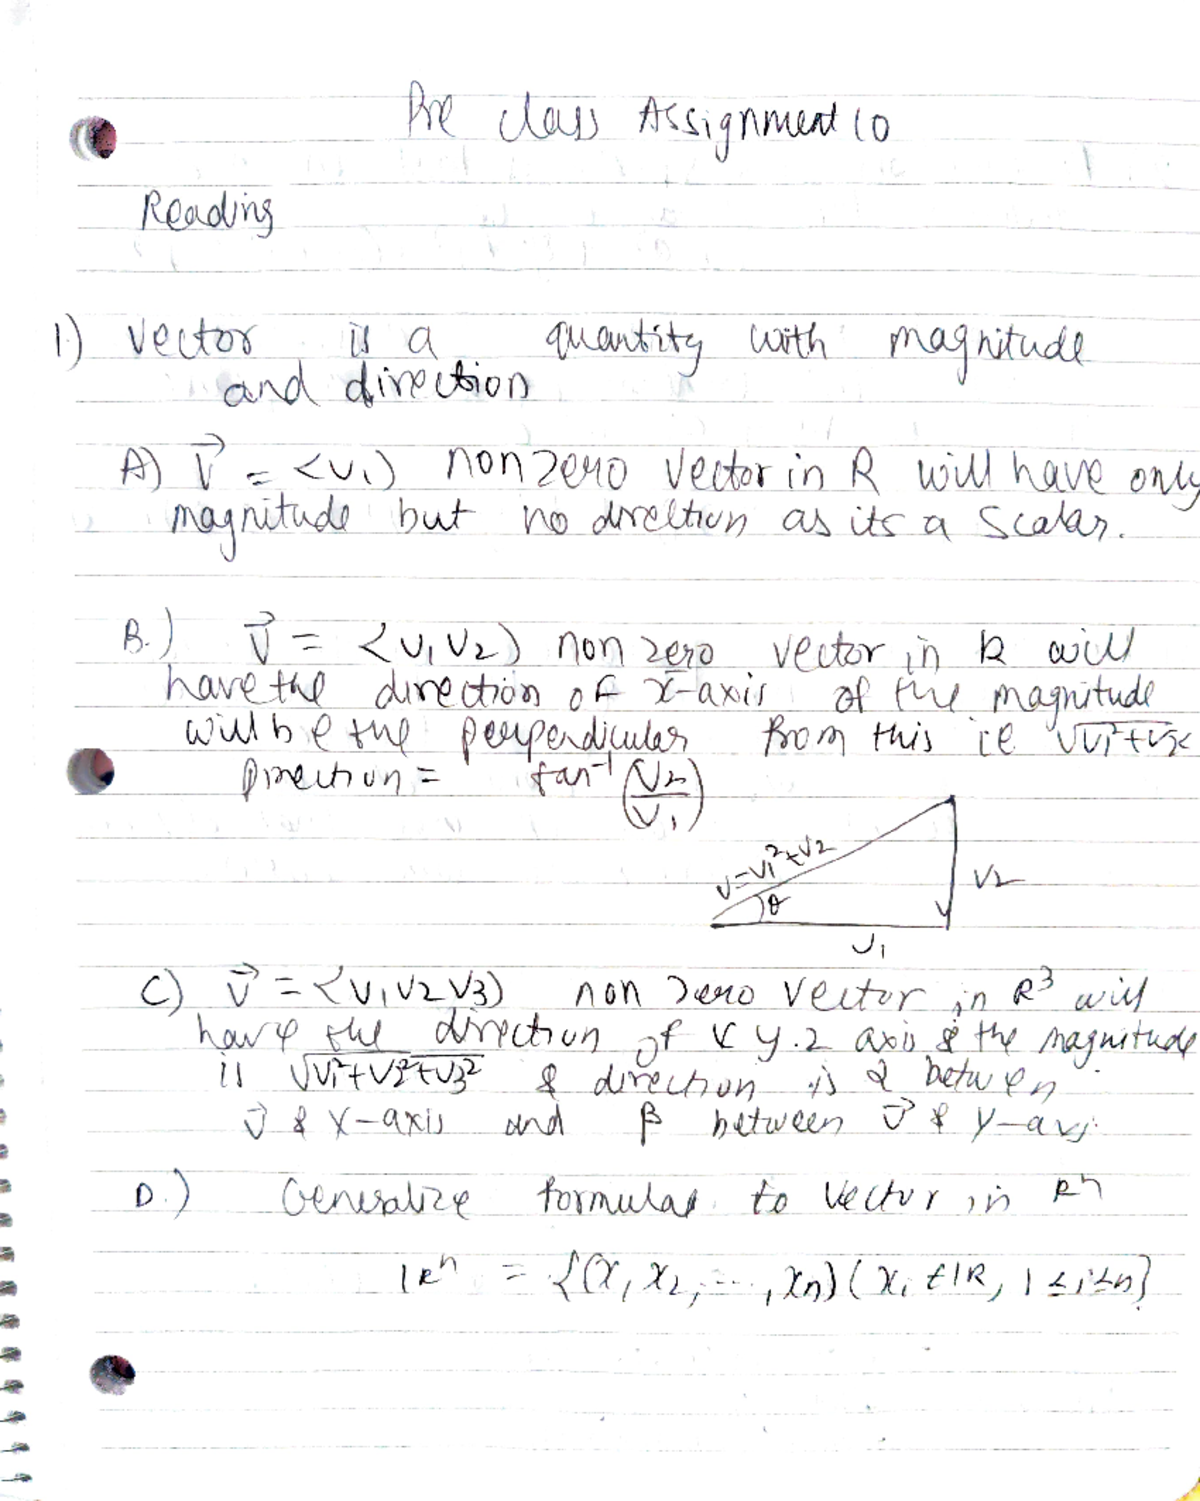 Pre class Assignment 10
Reading
1.) vector is a quantity with magnitude
and direction
A) V⃗ = <v₁) non zero vector in R will have only
magnitude but no direction as its a scalar.
B.) V⃗ = <v₁ v₂) non zero vector in R will
have the direction of x-axis of the magnitude
will be the perpendicular from this ie
Direction = tan⁻¹ (v₂/v₁)
v=v₁²+v2
θ
v2
v₁
C) v⃗ = <v₁ v2 v3) non zero vector in R³ will
have the direction of x y.z axis & the magnitude
is √v₁²+v2²+v3² & direction is α between
v⃗ & x-axis and β between v⃗ & y-axis
D.) Generalize formulas to vector in Rⁿ
IRⁿ = {(x, x₂, ..., xn) ( xᵢ ∈ IR, 1 ≤ i ≤ n}